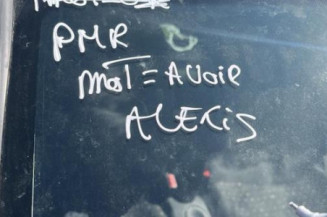 PMR
MOT = AVOIR
ALEXIS